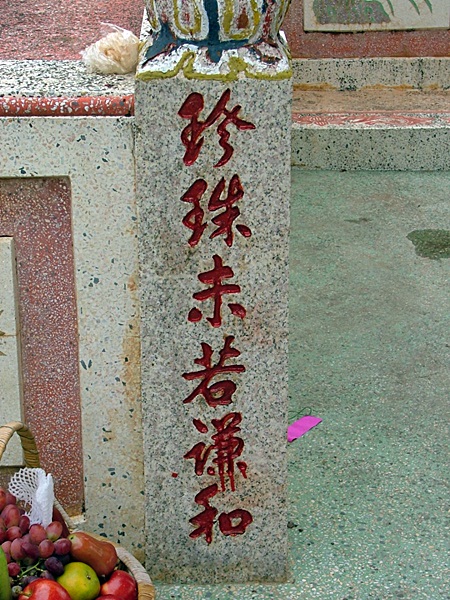 珍珠未若谦和